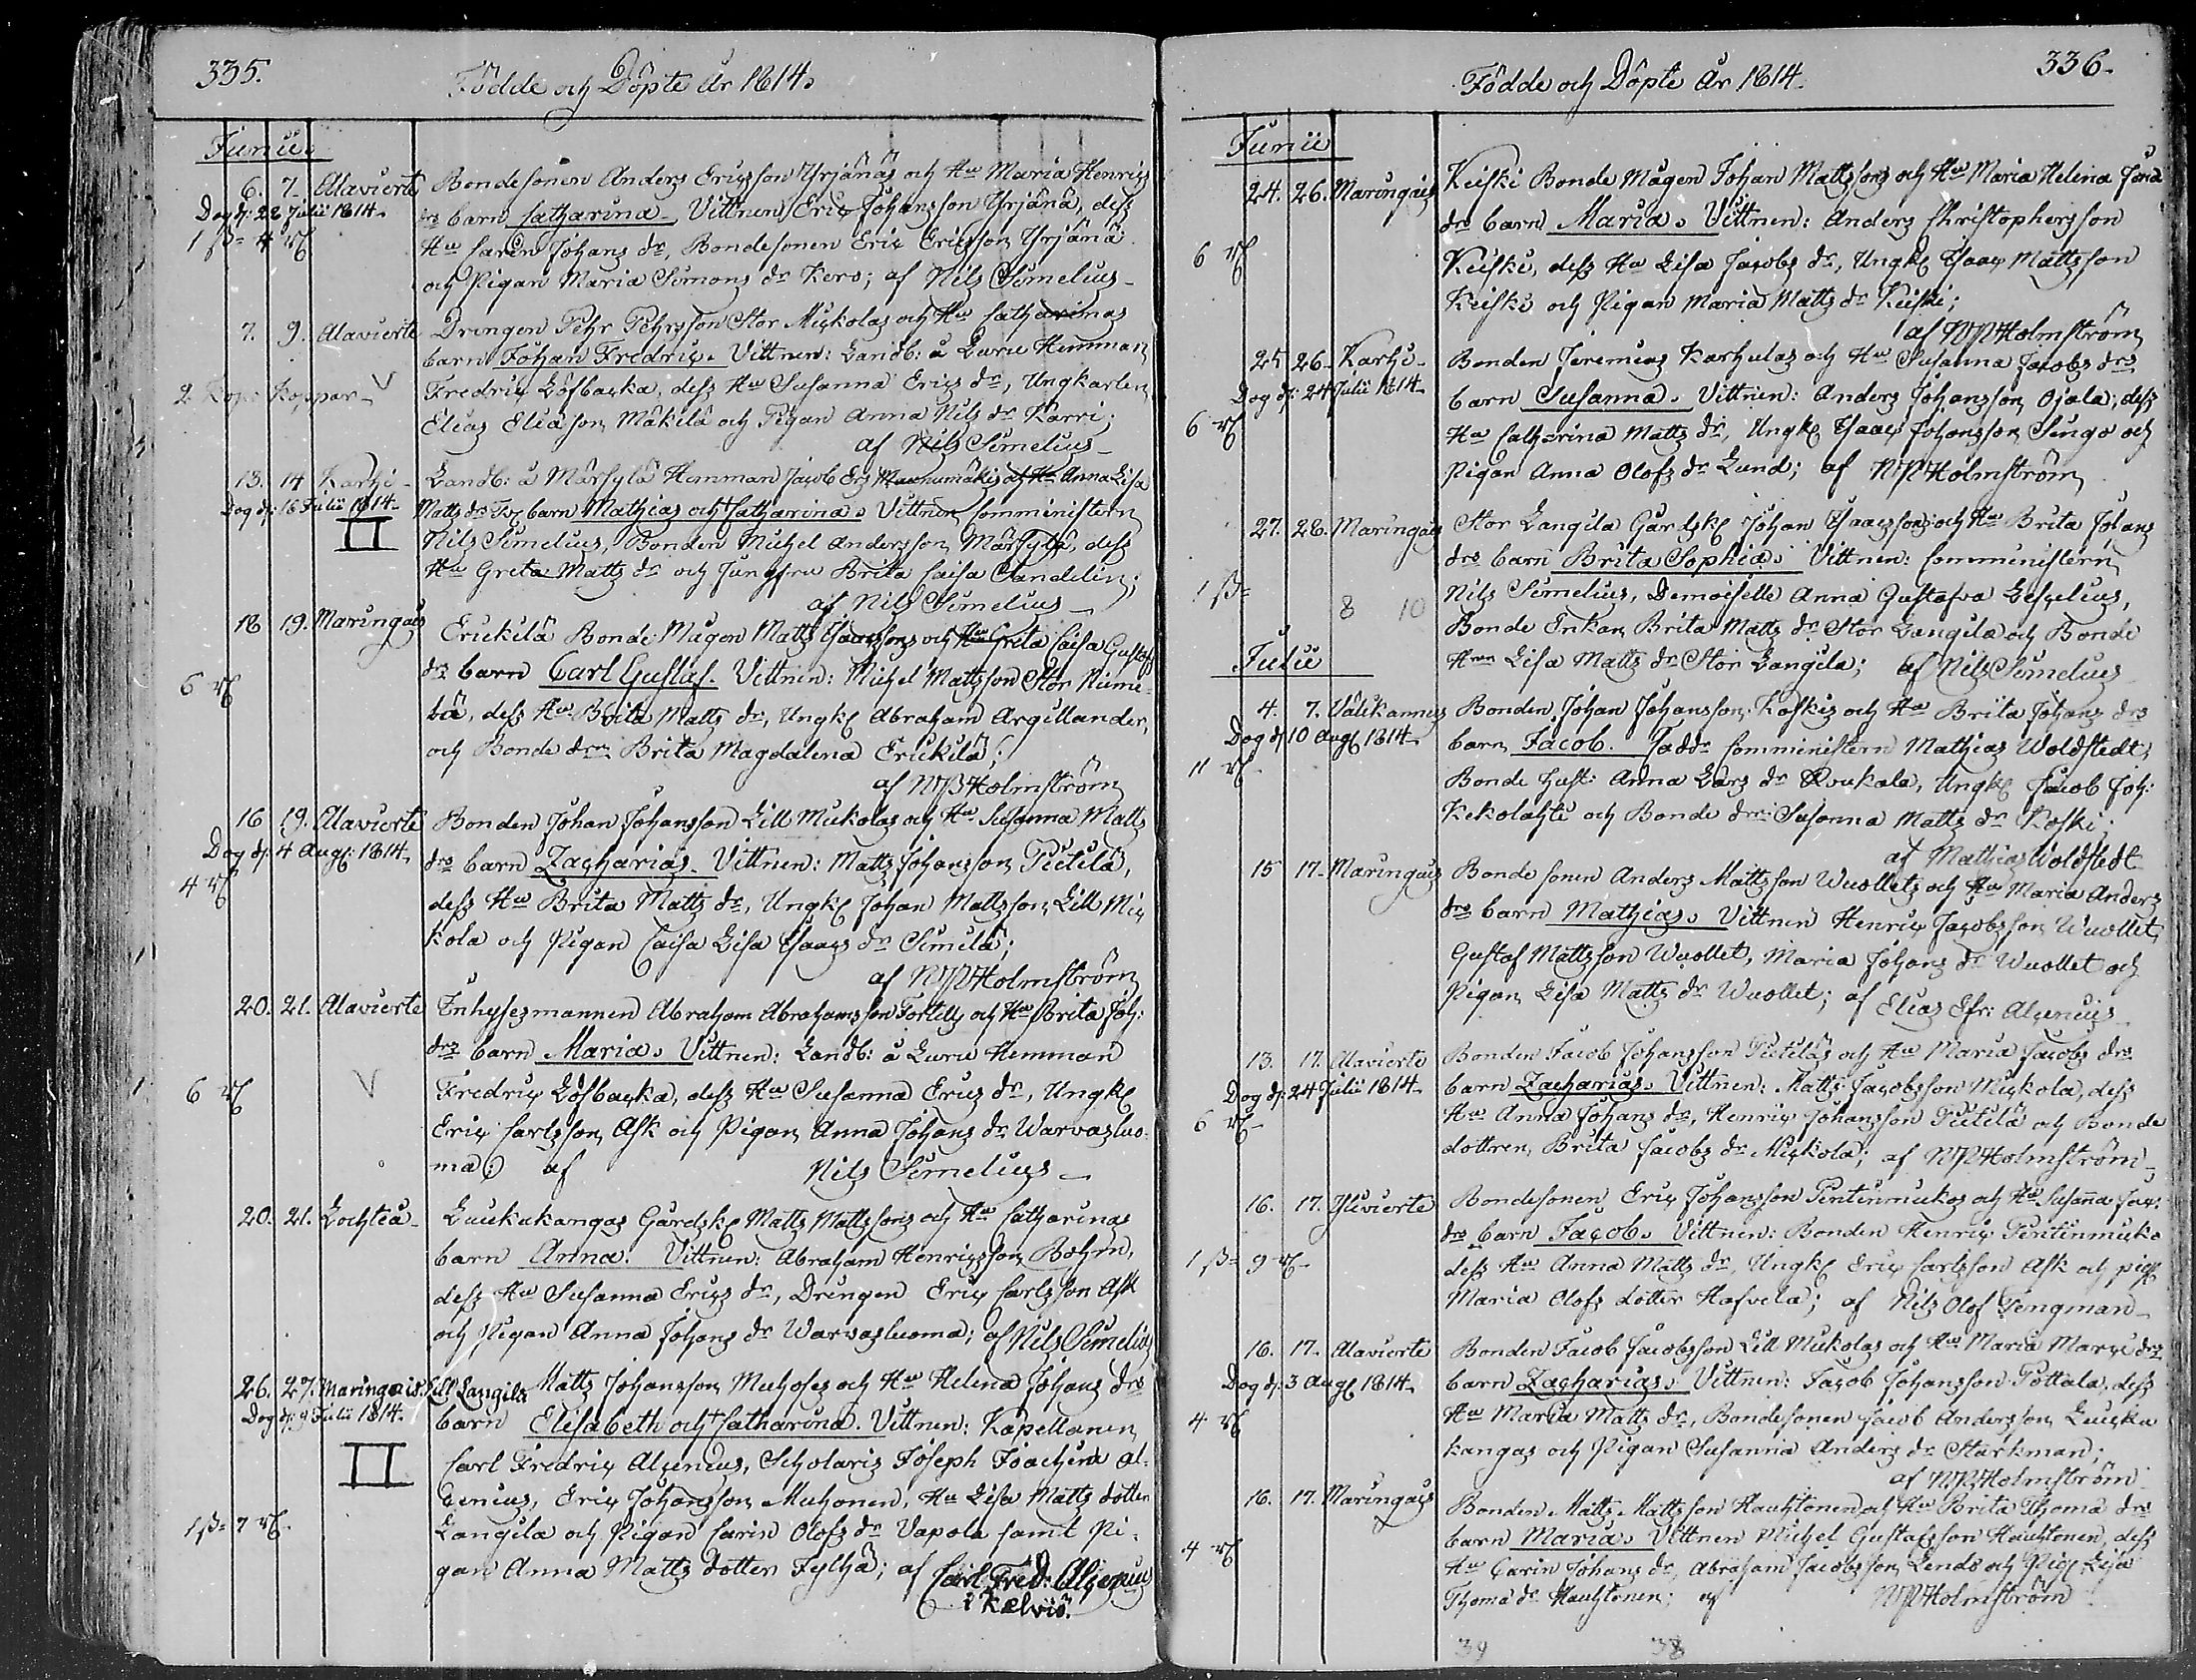 335.
Födde och Döpte År 1814.
Junii
6. 7. Alavierte Bondesonen Anders Ericsson Yrjänäs och Hu Maria Henrics
Dog d: 28 Julii 1814. drs barn Catharina. Vittnen, Eric Johansson Yrjänä, dess
1 ß= 4 rf Hu Caren Johans dr, Bondesonen Eric Ericsson Yrjänä
och Pigan Maria Simons dr Kero; af Nils Simelius
7. 9. Alavierte Drengen Pehr Pehrsson Stor Mickolas och Hu Catharinas
barn Johan Fredric. Vittnen: Landb: å Luru Hemman
2. Kopp. V Fredric Löfbacka, dess Hu Susanna Erics dr, Ungkarlen
Elias Eliasson Mäkilä och Pigan Anna Nils dr Karri;
af Nils Simelius
13. 14 Karhi- Landb: å Märsylä Hemman Jacob Ers och Hu Anna Lisa
Dog d: 16 Julii 1814. Matts drs barn Mathias och † Catharina. Vittnen Comministern
II Nils Simelius, Bonden Michel Andersson Märsylä, dess
Hu Greta Matts dr och Jungfru Brita Caisa Sandelin;
af Nils Simelius
18 19. Maringais Erickilä Bonde Mågen Matts Isaacssons och Hu Greta Caisa Gustafs
drs barn Carl Gustaf. Vittnen: Michel Mattsson Stor Nieme-
6 rf lä, dess Hu Brita Matts dr, Ungk Abraham Argillander,
och Bonde drn Brita Magdalena Erickilä;
af Holmström
16 19. Alavierte Bonden Johan Johansson Lill Mickolas och Hu Susanna Matts
Dog d: 4 Aug: 1814. drs barn Zacharias. Vittnen: Matts Johansson Pietilä,
4 rf dess Hu Brita Matts dr, Ungk Johan Mattsson Lill Mic
kola och Pigan Caisa Lisa Isaacs dr Similä;
af Holmström
20. 21. Alavierte Inhysesmannen Abraham Abrahamsson Tortells och Hu Brita Joh:
drs barn Maria. Vittnen: Landb: å Luru Hemman
6 rf V Fredric Löfbacka, dess Hu Susanna Erics dr, Ungk
Eric Carlsson Ask och Pigan Anna Johans dr Warvasluo-
ma; af Nils Simelius
20. 21. Lochteå Luukakangas Gårdsk Matts Mattssons och Hu Catharinas
barn Anna. Vittnen: Abraham Henricsson Böhm,
dess Hu Susanna Erics dr, Drengen Eric Carlsson Ask
och Pigan Anna Johans dr Warvasluoma; af Nils Simelius
26. 27. Maringais. Lill Langila Matts Johansson Muhoses och Hu Helena Johans drs
Dog d: 9 Julii 1814. barn Elisabeth och † Catharina. Vittnen: Kapellanen
II Carl Fredric Alcenius, Scholaris Joseph Joachim Al-
cenius, Eric Johansson Muhonen, Hu Lisa Matts dotter
1 ß= 7 rf Langila och Pigan Carin Olofs dr Vapola samt Pi-
gan Anna Matts dotter Jylhä; af Carl Fred: Alcenius
i Kelviå.
336.
Födde och Döpte År 1814.
Junii
24. 26. Maringais Keiski Bonde Mågen Johan Mattssons och Hu Maria Helena
drs barn Maria. Vittnen: Anders Christophersson
6 rf Keiski, dess Hu Lisa Jacobs dr, Ungk Isaac Mattsson
Keiski och Pigan Maria Matts dr Keiski;
af Holmström
25 26. Karhi- Bonden Jeremias Karhulas och Hu Susanna Jacobs drs
Dog d: 24 Julii 1814. barn Susanna. Vittnen: Anders Johansson Ojala, dess
6 rf Hu Catharina Matts dr, Ungk Isaac Johansson Singo och
Pigan Anna Olofs dr Lund; af Holmström
27. 28. Maringais Stor Langila Gårdsk Johan Isaacssons och Hu Brita Johans
drs barn Brita Sophia. Vittnen: Comministern
1 ß= 8 10 Nils Simelius, Demoiselle Anna Gustafva Leschelius,
Bonde Enkan Brita Matts dr Stor Langila och Bonde
Julii Hrun Lisa Matts dr Stor Langila; af Nils Simelius
4. 7. Välikannus Bonden Johan Johansson Koskis och Hu Brita Johans drs
Dog d: 10 Aug 1814. barn Jacob. Fadd: Comministern Mathias Woldstedt,
11 rf Bonde Hust: Anna Lars dr Roukala, Ungk Jacob Joh:
Kekolahti och Bonde drn Susanna Matts dr Koski;
af Mathias Woldstedt
15 17. Maringais Bonde sonen Anders Mattsson Wuollets och Hu Maria Anders
drs barn Mathias. Vittnen Henric Jacobsson Wuollet,
Gustaf Mattsson Wuollet, Maria Johans dr Wuollet och
Pigan Lisa Matts dr Wuollet; af Elias Efr: Alcenius
13. 17. Alavierte Bonden Jacob Johansson Pietiläs och Hu Maria Jacobs drs
Dog d: 24 Julii 1814. barn Zacharias. Vittnen: Matts Jacobsson Mickola, dess
6 rf Hu Anna Johans dr, Henric Johansson Pietilä och Bonde
dottren Brita Jacobs dr Mickola; af Holmström
16. 17. Ylivierte Bondesonen Eric Johansson Pentinmickos och Hu Susanna Jac:
drs barn Jacob. Vittnen: Bonden Henric Pentinmicko
1 ß= 9 rf dess Hu Anna Matts dr, Ungk Eric Carlsson Ask och pig
Maria Olofs dotter Hafvela; af Nils Olof Tengman
16. 17. Alavierte Bonden Jacob Jacobsson Lill Mickolas och Hu Maria Marci drs
Dog d: 3 Aug 1814. barn Zacharias. Vittnen: Jacob Johansson Tottala, dess
4 rf Hu Maria Matts dr, Bondesonen Jacob Andersson Luucka
kangas och Pigan Susanna Anders dr Starkman;
af Holmström
16. 17. Maringais Bonden Matts Mattsson Hauhtonen och Hu Brita Thoma drs
barn Maria. Vittnen Michel Gustafsson Hauhtonen, dess
4 rf Hu Carin Johans dr, Abraham Jacobsson Lendo och Pig Lisa
Thoma dr Hauhtonen; af Holmström
39 38